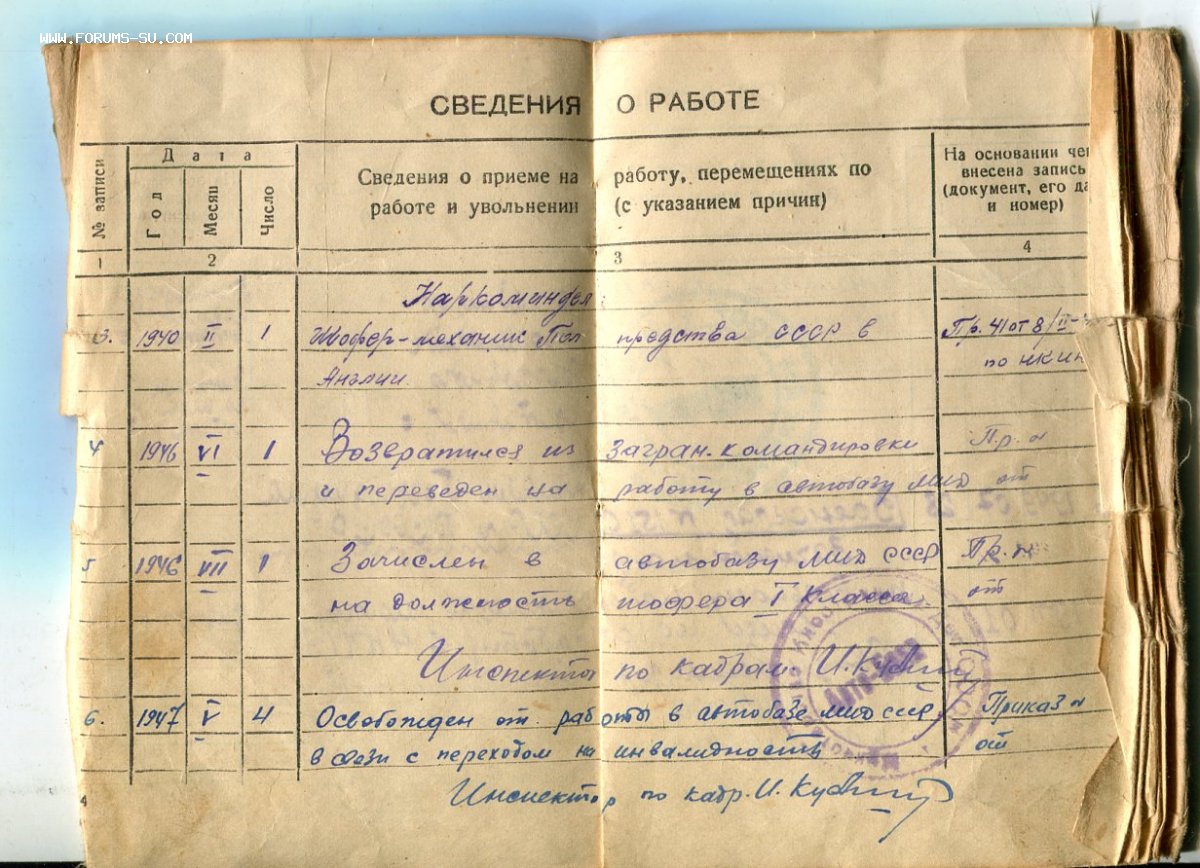 WWW.FORUMS-SU.COM
СВЕДЕНИЯ О РАБОТЕ
№ записи
Дата
Год
Месяц
Число
Сведения о приеме на работу, перемещениях по
работе и увольнении (с указанием причин)
На основании че
внесена запись
(документ, его да
и номер)
1 2 3 4
Наркоминдел
3. 1940 II 1 Шофер-механик Полпредства СССР в Пр. 41 от 8/II-
Англии. по НКИД
4 1946 VI 1 Возвратился из загран. командировки Пр. №
и переведен на работу в автобазу МИД от
5 1946 VII 1 Зачислен в автобазу МИД СССР Пр. №
на должность шофера I класса. от
Инспектор по кадрам И.
6. 1947 V 4 Освобожден от работы в автобазе МИД СССР, Приказ №
в связи с переходом на инвалидность от
Инспектор по кадр. И.
4